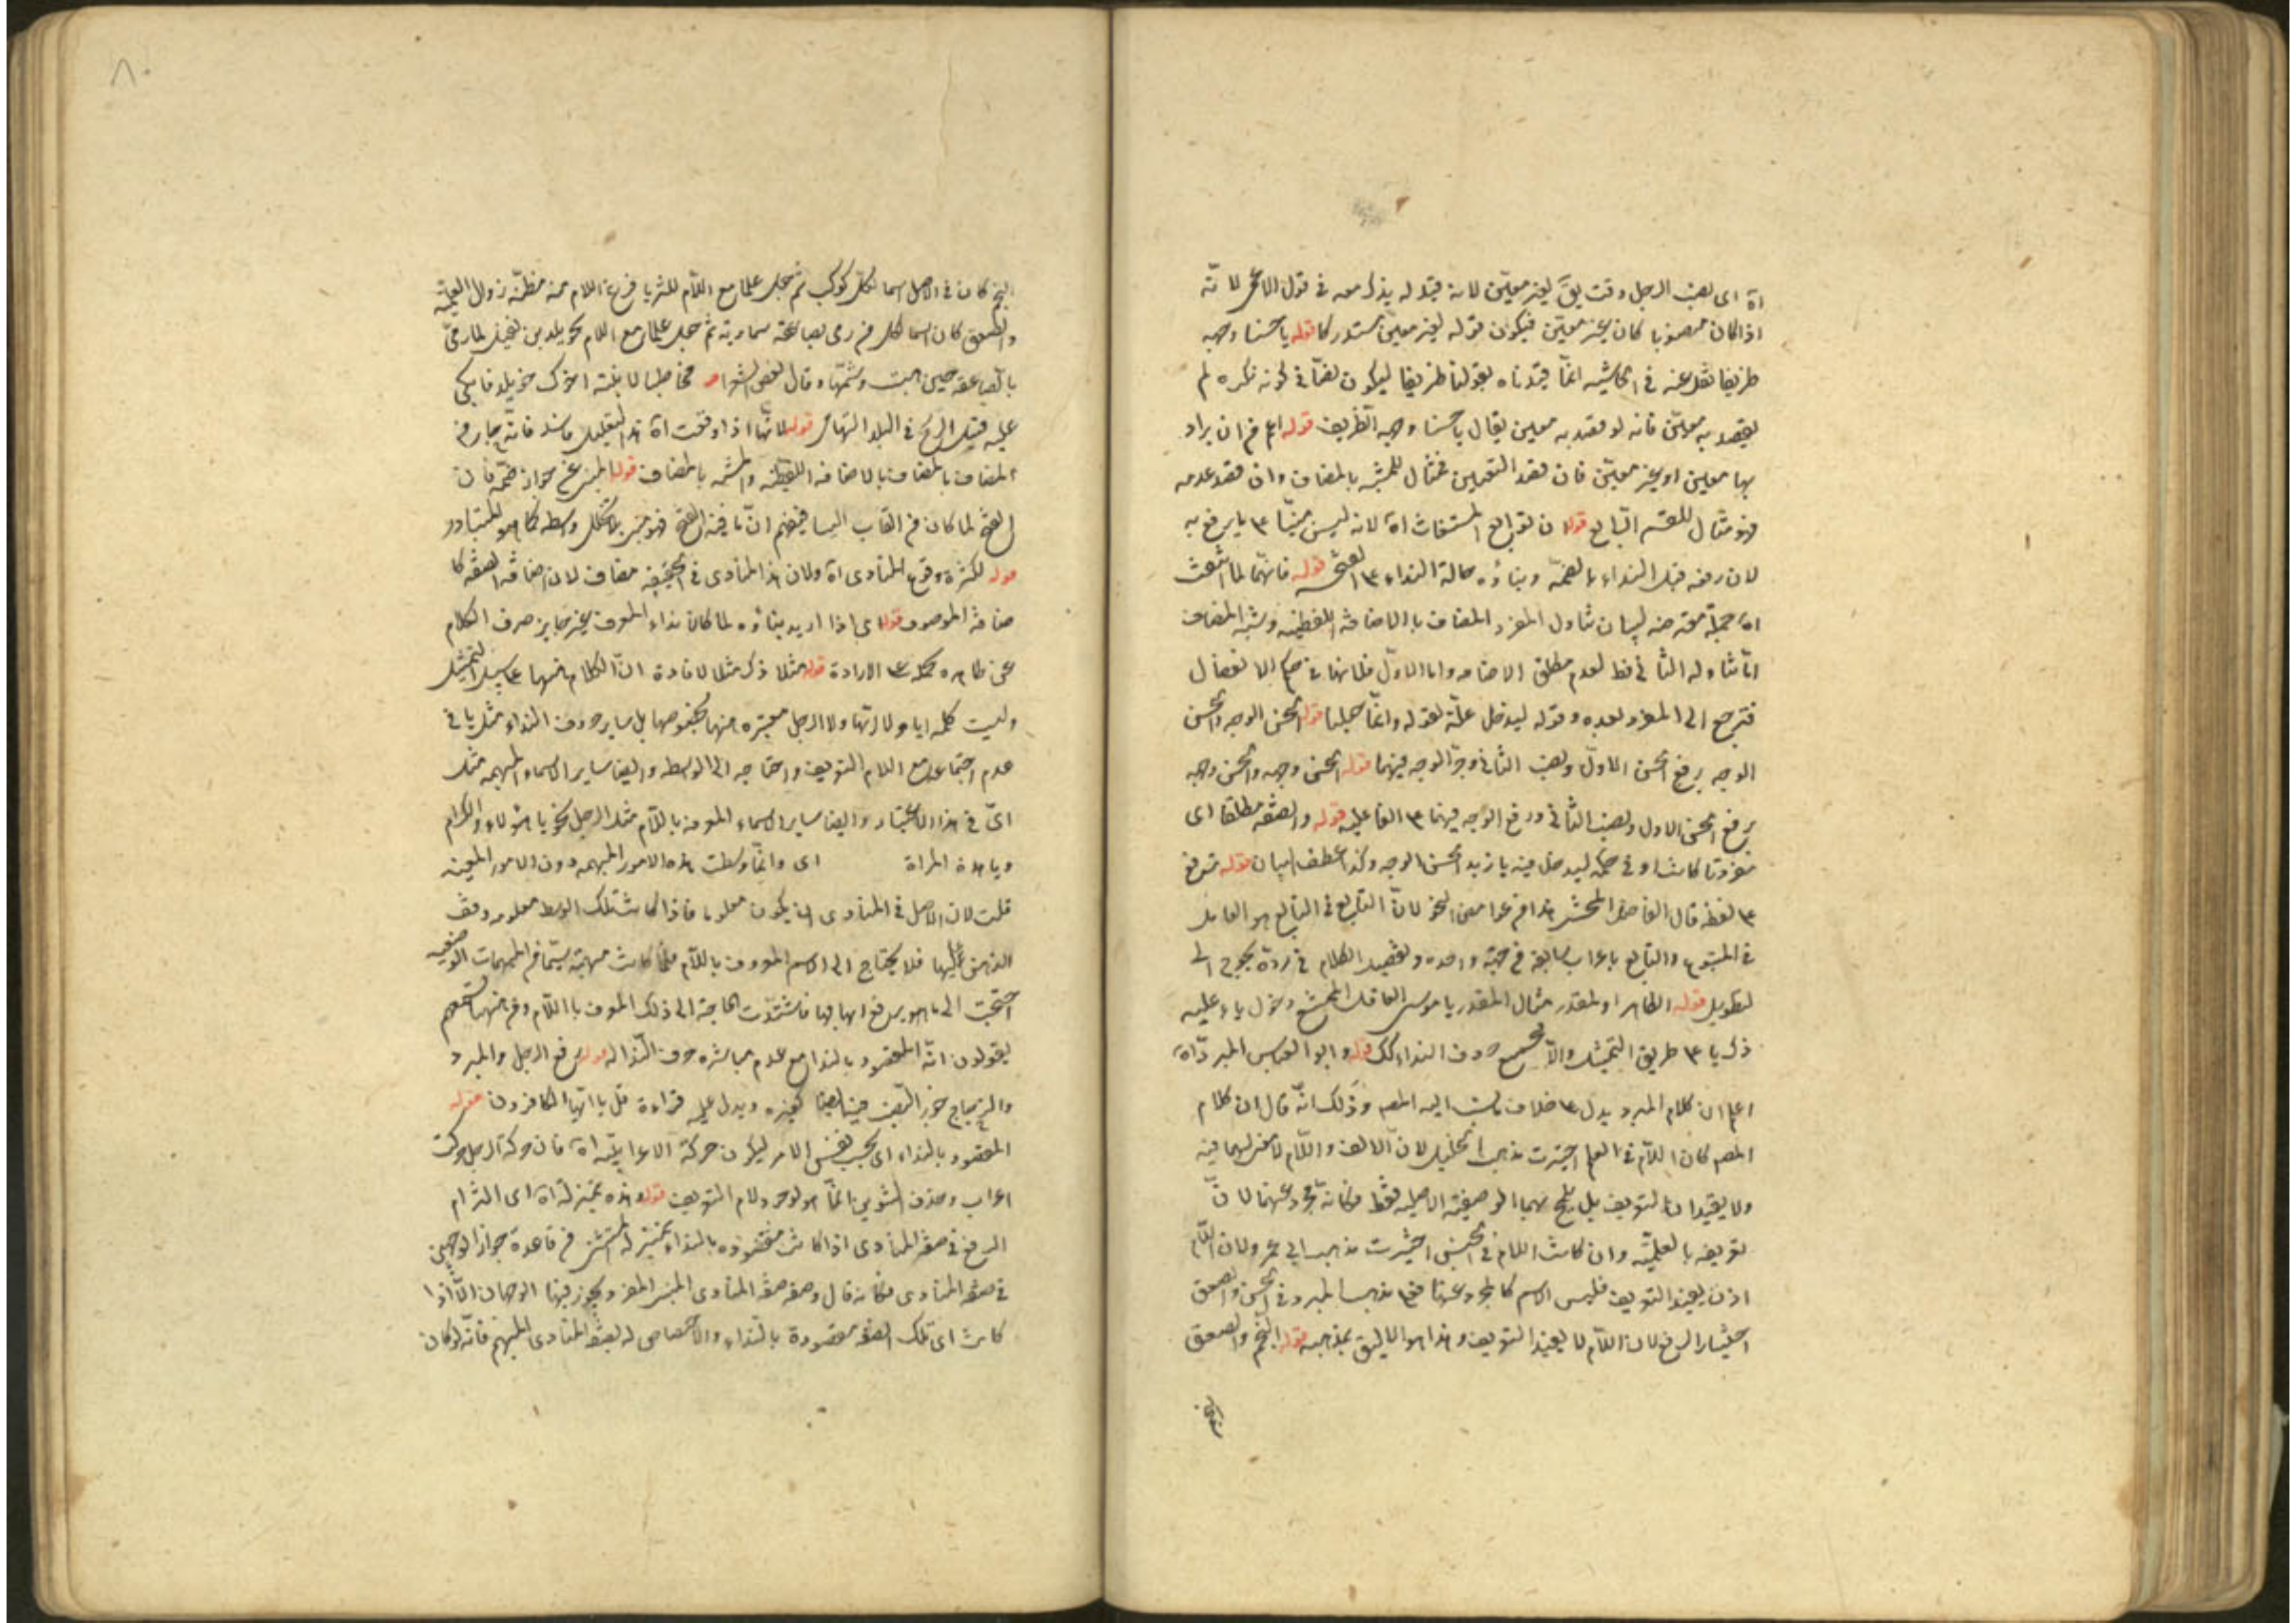 اه اى نصب الرجل وقت يق لغير معين لانه قيد له يذكر معه فى قول الاعمى لانه
اذا كان منصوبا كان غير معين فيكون قوله لغير معين مستدركا قوله يا حسنا وجهه
ظريفا نقل عنه فى الحاشيه انما قيدناه بقولنا ظريفا ليكون نصا فى كونه نكره لم
يقصد به معين فانه لو قصد به معين يقال يا حسنا وجهه الظريف قوله اعم من ان يراد
بها معين او غير معين فان قصد التعيين فمثال للمشبه بالمضاف وان قصد عدمه
فهو مثال للقسم الرابع قوله لان توابع المستغاث اه لانه ليس مبنيا ع ما يرفع به
لان رفعه قبل النداء بالضمة وبناؤه حالة النداء ع الفتح قوله فانهما لما انتفت
اه جملة معترضه لبيان تناول المفرد المضاف بالاضافة اللفظيه وشبه المضاف
اما تناوله الثانى فظ لعدم مطلق الاضافه واما الاول فلانها فى حكم الانفصال
فترجع الى المفرد بعده وقوله ليدخل علة لقوله وانما جعلنا قوله الحسن الوجه والحسن
الوجه برفع الحسن الاول ونصب الثانى وجر الوجه فيهما قوله الحسن وجهه والحسن وجهه
برفع الحسن الاول ونصب الثانى ورفع الوجه فيهما ع الفاعليه قوله والصفه مطلقا اى
مفردة كانت او فى حكمه ليدخل فيه يا زيد الحسن الوجه وكذا عطف البيان قوله ترفع
ع لفظه قال الفاضل المحشى هذا من غوامض النحو لان التابع فى التابع هو العامل
فى المتبوع والتابع باعراب سابقه من جهة واحده وتفصيل الكلام فى رده يحوج الى
تطويل قوله الظاهر او المقدر مثال المقدر يا موسى العاقل المحشى دخول ياء عليه
ذكر يا ع طريق التمثيل والا فجميع حروف النداء كك قوله وابو العباس المبرد اه
اعلم ان كلام المبرد يدل ع خلاف ما نسب اليه المصم وذلك انه قال ان كلام
المصم كان اللام فى العلم اخترت مذهب الخليل لان الالف واللام لا معنى لهما فيه
ولا يفيدان التعريف بل يلمح بهما الوصفية الاصليه فقط فكانه مجرد عنهما لان
تعريفه بالعلمية وان كانت اللام فى الجنس اخترت مذهب ابى عمرو لان اللام
اذن يفيد التعريف فليس الاسم كالمجرد عنها فع مذهب المبرد فى الحسن والصعق
اختيار الرفع لان اللام لا يفيد التعريف وهذا هو اللايق بمذهبه قوله النجم والصعق
النجم كان فى الاصل اسما لكل كوكب ثم جعل علما مع اللام للثريا فنزع اللام منه مظنة زوال العلمية
والصعق كان اسما لكل من رمى بصاعقة سماويه ثم جعل علما مع اللام لخويلد بن نفيل لما رمى
بالصاعقه حين هبت وشتمها وقال بعض الشعراء مخاطبا لابنته اخوك خويلد فابكى
عليه قتيل الريح فى البلد التهام قوله لانها اذا وقعت اه هذا التعليل فاسد فانه جار فى
المضاف بالمضاف بالاضافه اللفظيه والمشبه بالمضاف قوله المبنى عن جواز ضمه فان
الفتح لما كان من القاب البناء فيفهم ان ما فيه الفتح
قوله لكثرة وقوع المنادى اه ولان هذا المنادى فى الحقيقه مضاف لان اضافة الصفه كا
ضافة الموصوف قوله اى اذا اريد بناؤه لما كان نداء المعرف غير جايز صرف الكلام
عن ظاهره محله ع الارادة قوله مثلا ذكر مثلا لافادة ان الكلام منهما ع سبيل التمثيل
وليست كلمه ايا ولا ايها ولا الرجل معتبره منها بخصوصها بل ساير حروف النداء مثل يا فى
عدم اجتماعه مع اللام التعريف واحتياجه الى الواسطه وايضا ساير الاسماء المبهمه مثل
اى فى هذا الاعتبار وايضا ساير الاسماء المعرفه باللام مثل الرجل نحو يا هؤلاء والكرام
ويا هذه المراة اى وانما وسطت هذه الامور المبهمه دون الامور المعينه
قلت لان الاصل فى المنادى ان يكون معلوما فاذا كانت تلك الوسط معلومه وقف
الذهن عليها فلا يحتاج الى الاسم المعرف باللام فلما كانت مبهمة سيما من المبهمات الوضعيه
احتيجت الى ما هو يرفع ابهامها فاشتدت الحاجة الى ذلك المعرف باللام ومن هنا تسمعهم
يقولون انه المقصود بالنداء مع عدم مباشره حرف النداء له قوله رفع الرجل والمبرد
والزجاج جوز النصب فيه ايضا كغيره ويدل عليه قراءة قل يا ايها الكافرون قوله
المقصود بالنداء اى بحسب نفس الامر ليكون حركة الاعرابيه اه فان حركة الرجل حركت
اعراب وحذف التنوين انما هو لوجود لام التعريف قوله وهذه بمنزلة اه اى التزام
الرفع فى صفه المنادى اذا كانت مقصوده بالنداء بمنزله المستثنى من قاعدة جواز الوجهين
فى صفه المنادى فكانه قال وصفه صفه المنادى المبنى المفرد يجوز فيها الوجهان الا اذا
كانت اى تلك الصفه مقصودة بالنداء والاختصاص له بصفه المنادى المبهم فانه لو كان
٨٠